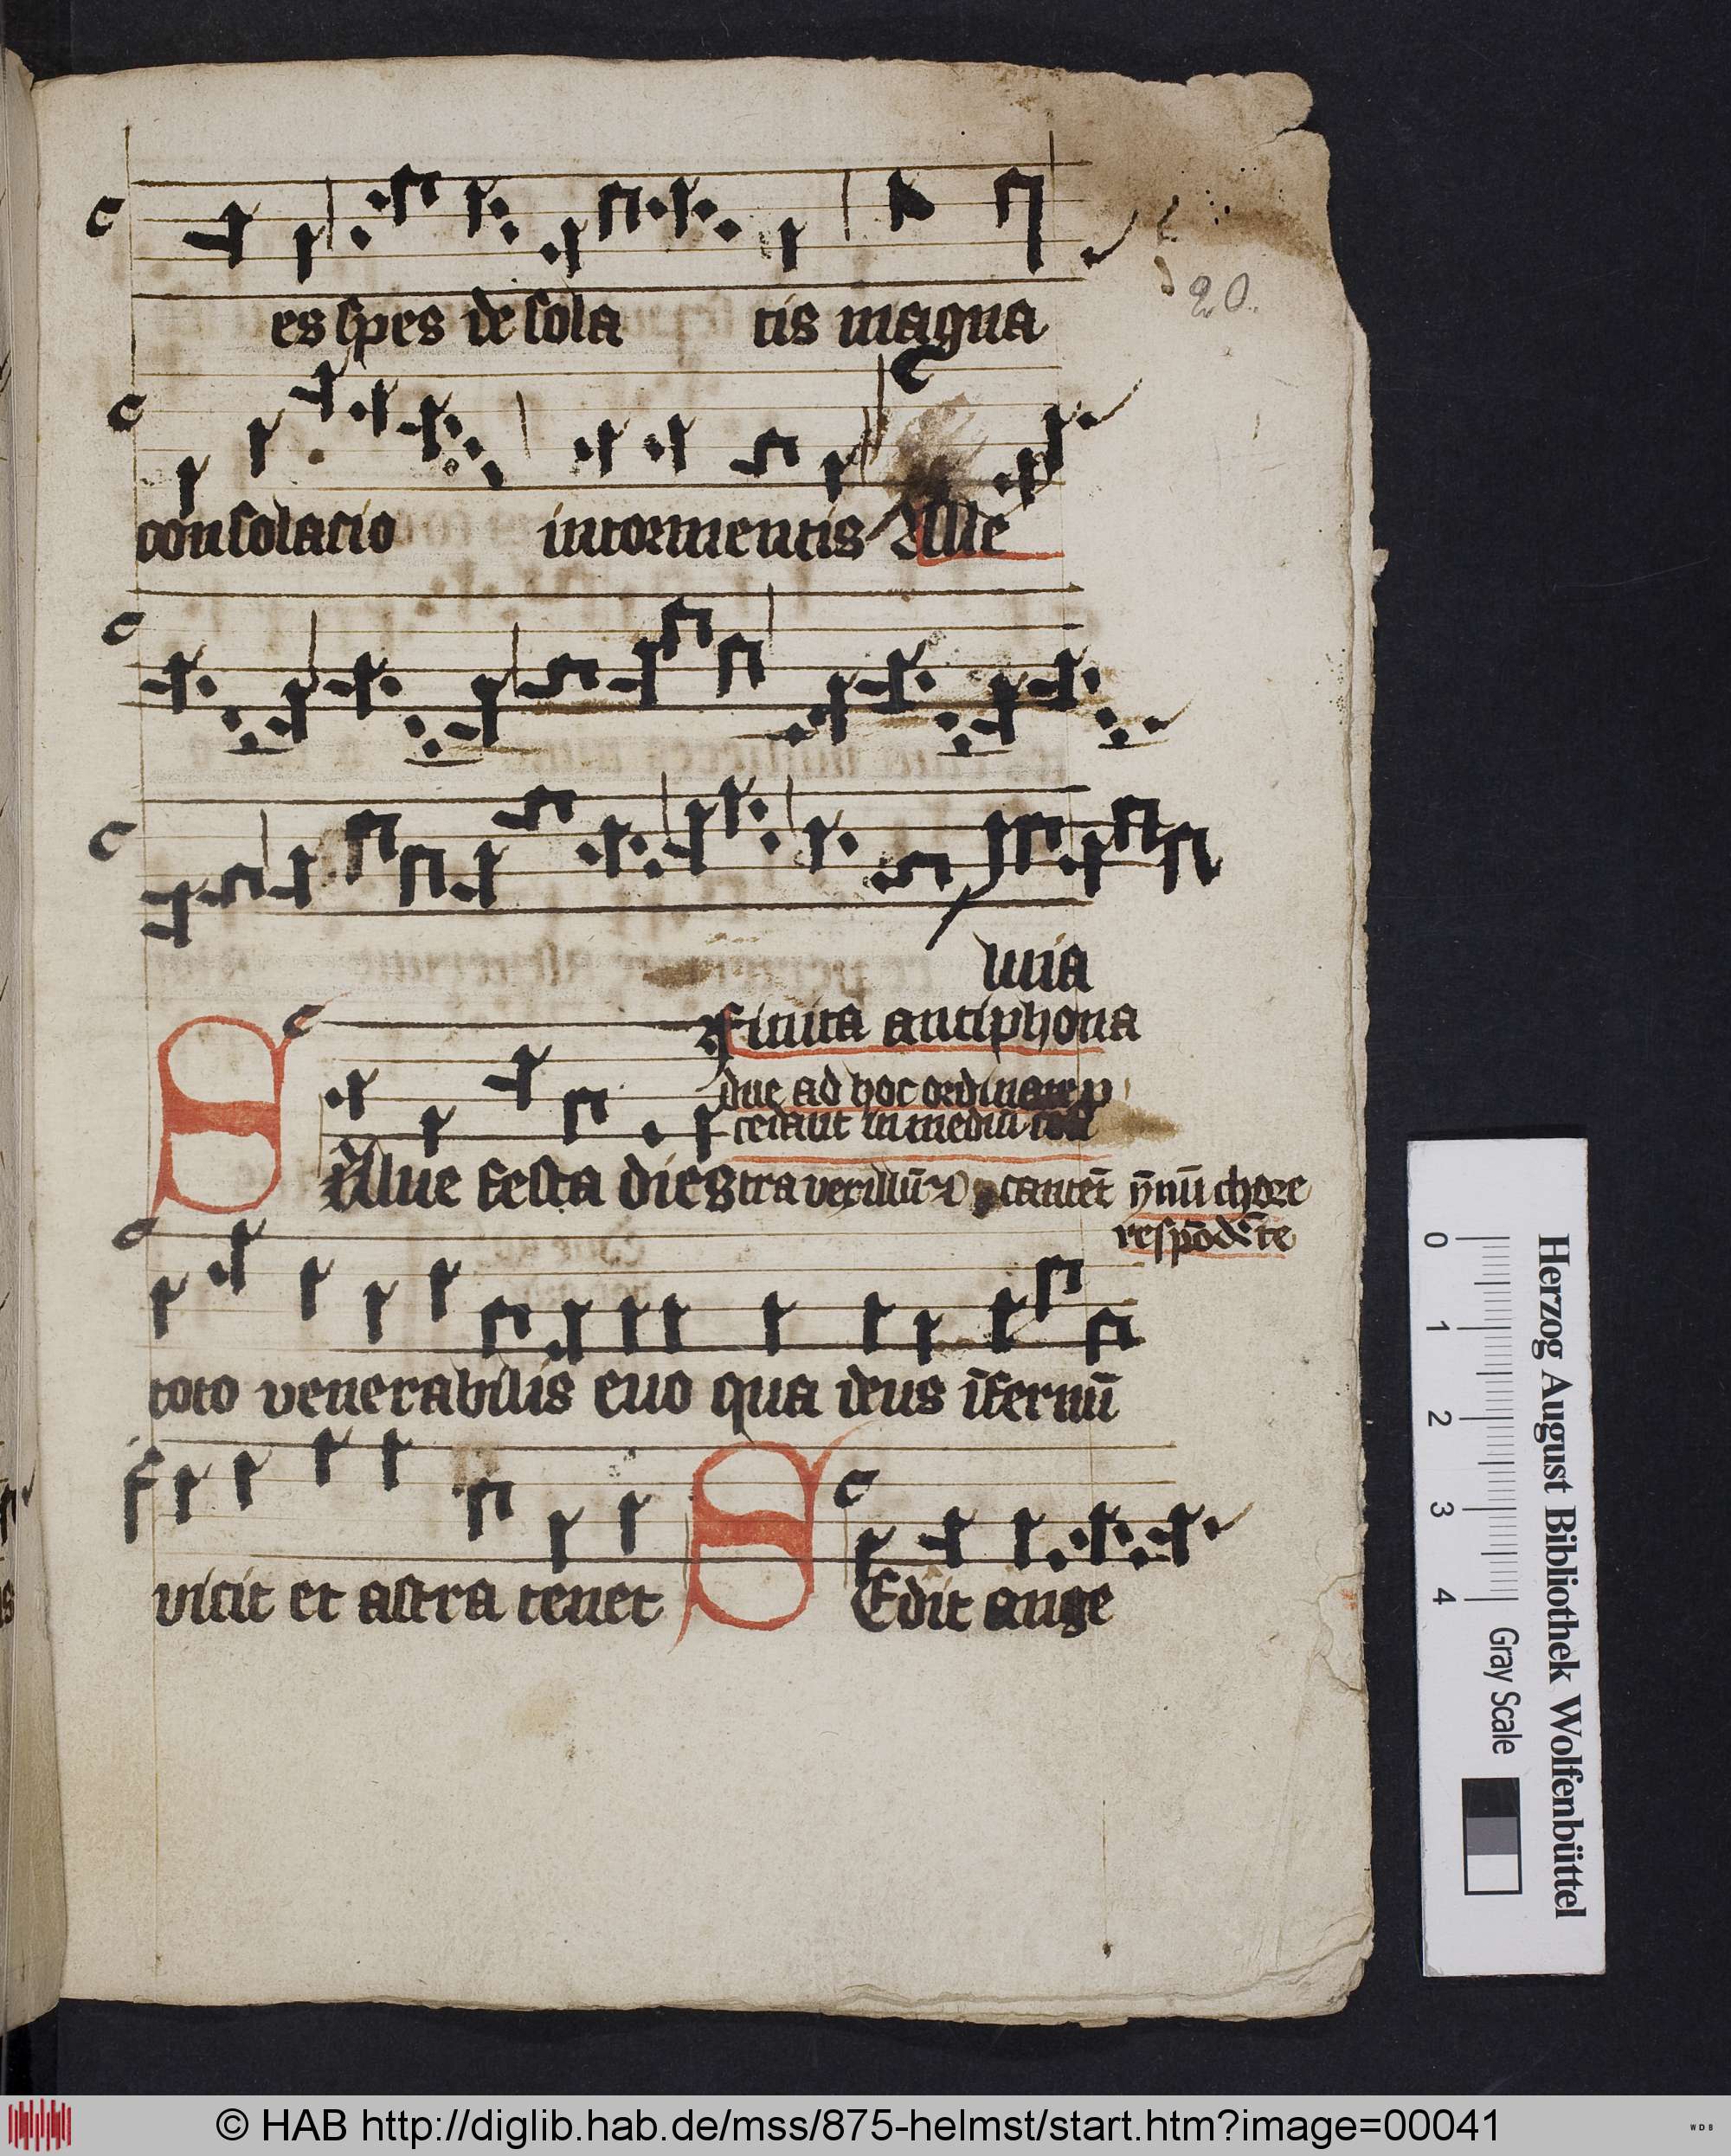 20.
es spes desola tis magna
consolacio intormentis Alle
luia
Finita antiphona
due ad hoc ordinate p
cedant in mediū
Salue festa dies tra vexillū cantēt ȳnū chore
respōdēte
toto venerabilis euo qua deus īfernū
vicit et astra tenet Sedit ange
Herzog August Bibliothek Wolfenbüttel
0 1 2 3 4 Gray Scale
© HAB http://diglib.hab.de/mss/875-helmst/start.htm?image=00041
WDB